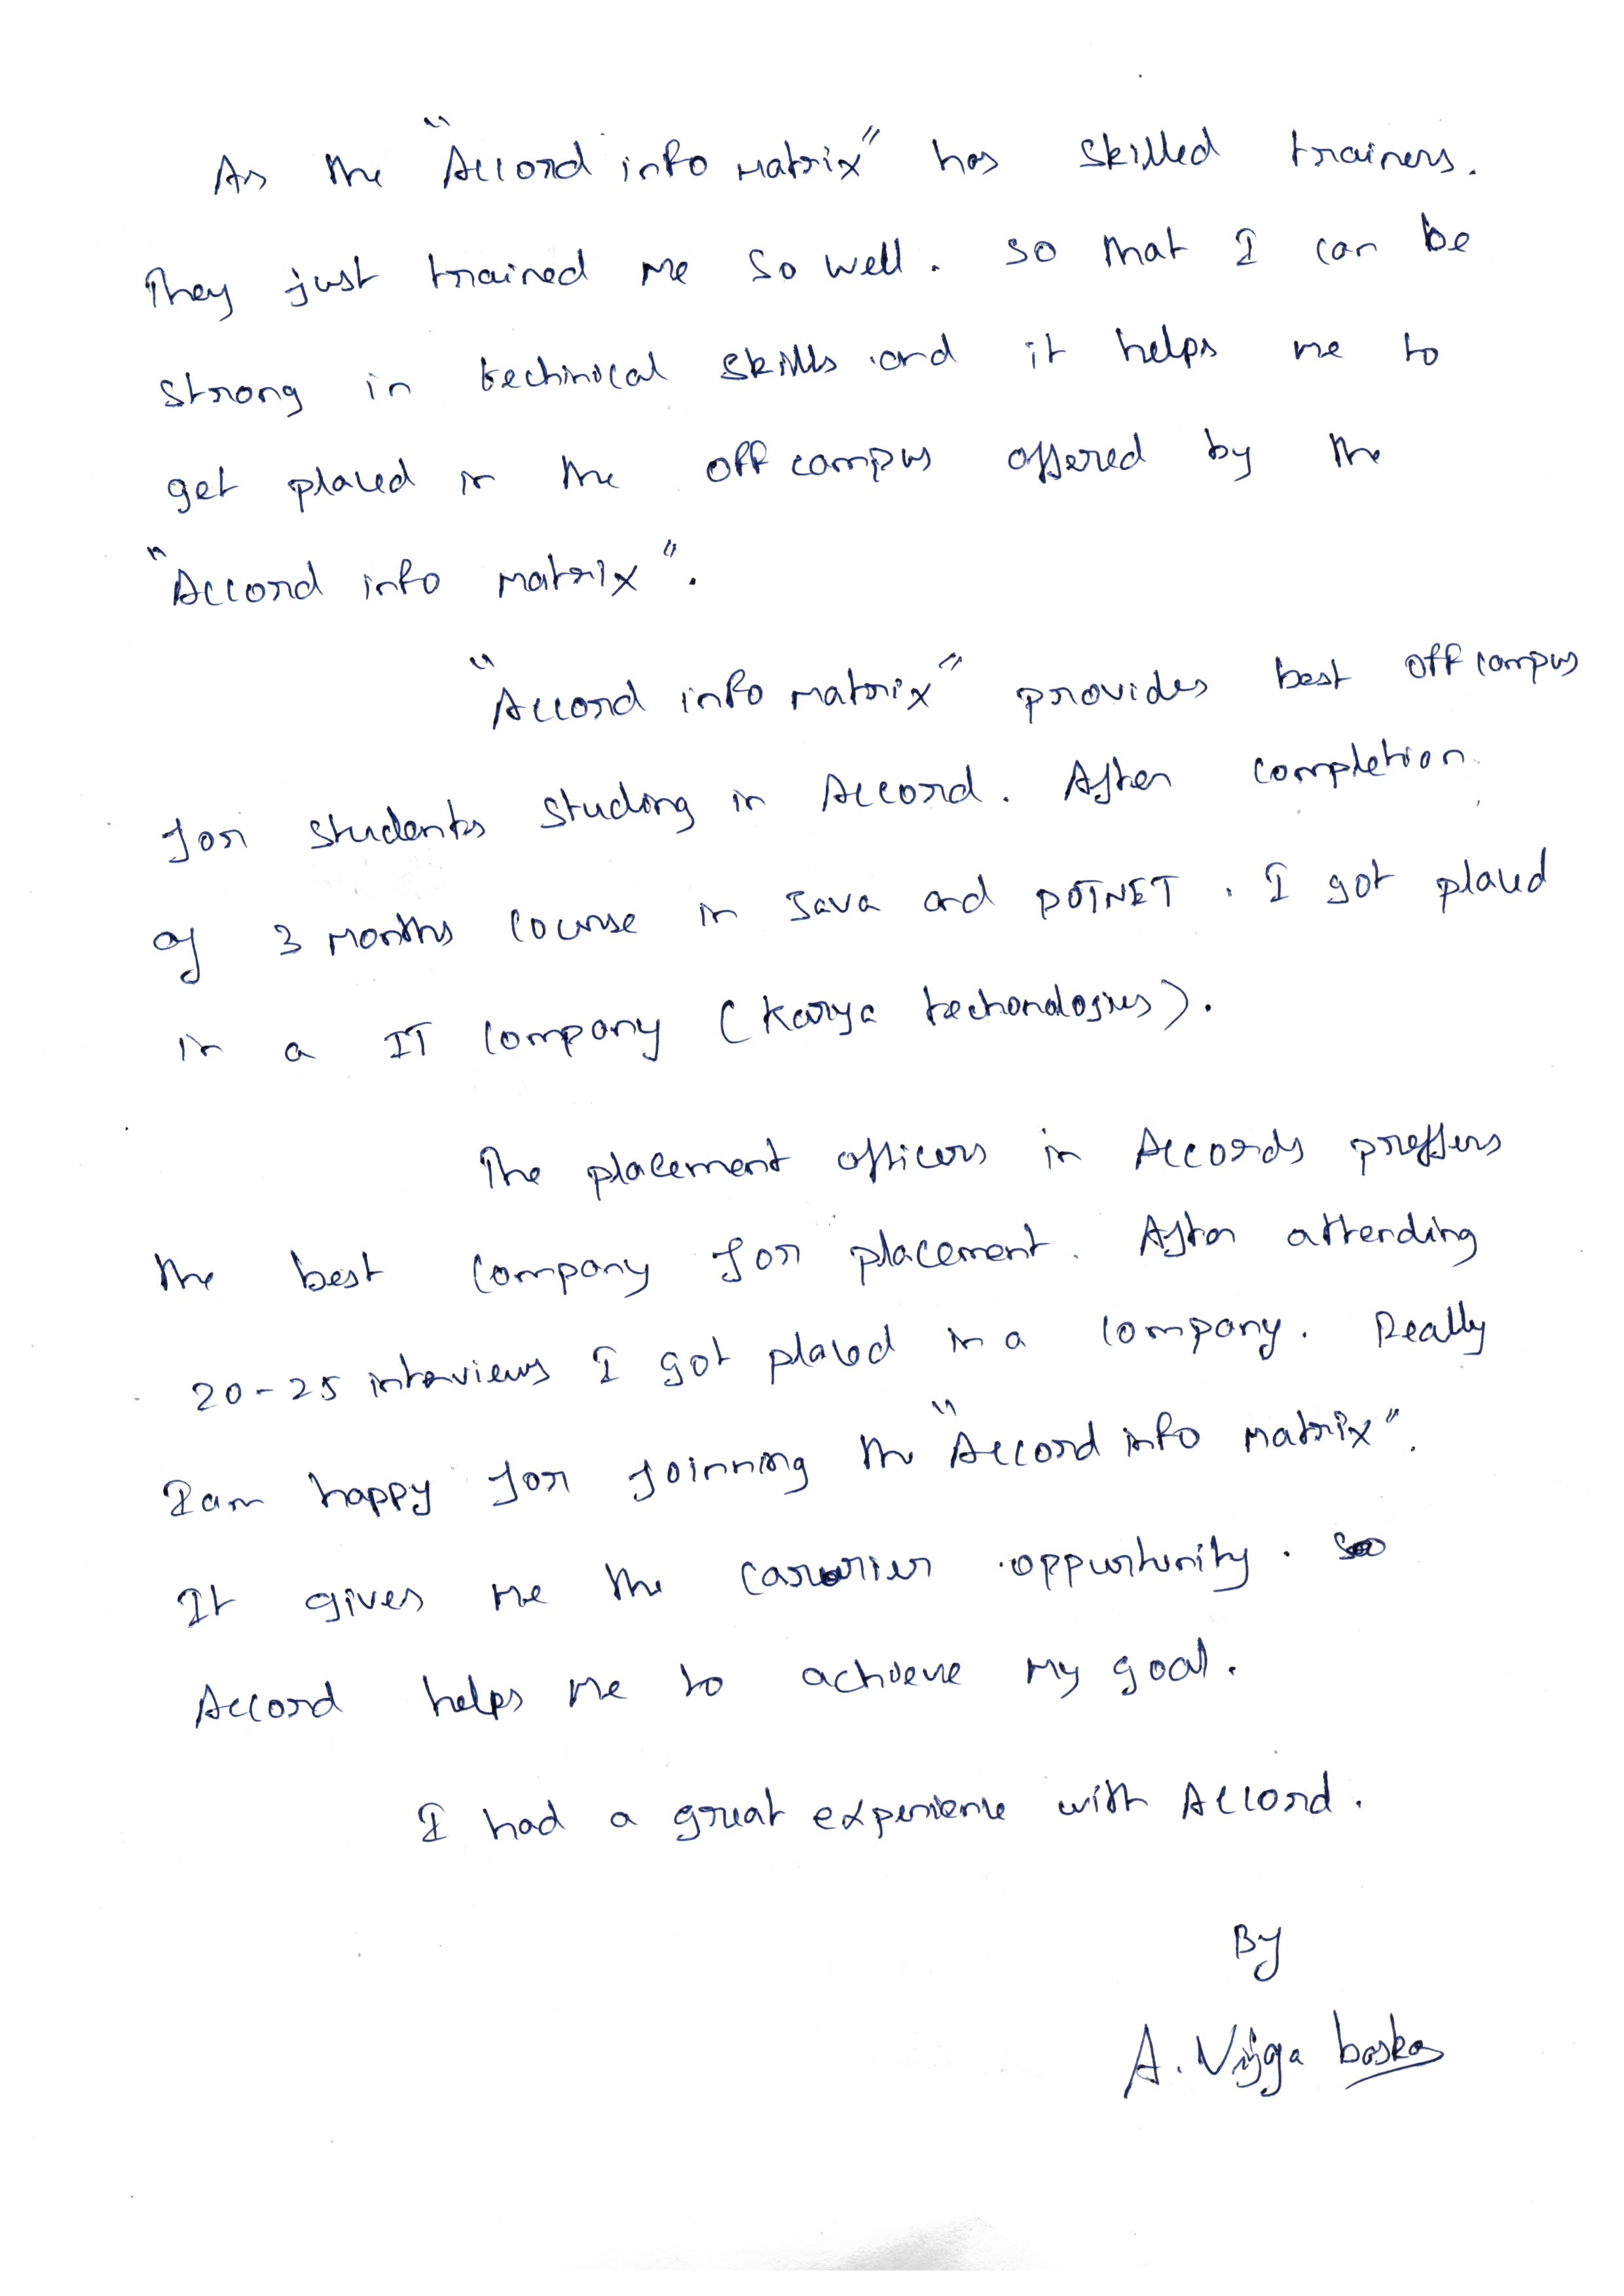 As the "Accord info matrix" has skilled trainers.
They just trained me so well. so that I can be
strong in techinical skills and it helps me to
get placed in the off campus offered by the
"Accord info matrix".
"Accord info matrix" provides best off campus
for students studing in Accord. After completion
of 3 months course in Java and DOTNET. I got placed
in a IT company (Karya techonologies).
The placement officers in Accords preffers
the best company for placement. After attending
20-25 interviews I got placed in a company. Really
I am happy for joinning the "Accord info matrix".
It gives me the oppurtunity.
Accord helps me to achieve my goal.
I had a great experience with Accord.
By
A. Vijya baskar